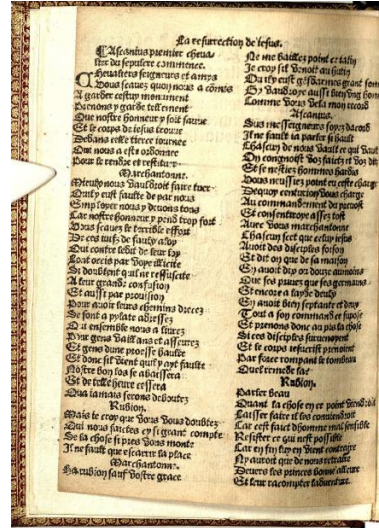 La resurrection de iesus.
Ascanius premiere cheua-
lier du sepulcre commence.
Cheualiers seigneurs et amys
Vous scauez quoy nous a cōmis
A garder cestuy monument
Prenons y garde tellement
Que nostre honneur y soit sauue
Et le corps de iesus trouue
Dedans ceste tierce iournee
Que nous a este ordonnee
Pour le rendre et restituer
Marchantonne.
Mieulx nous vauldroit faire tuer
Quil y eust faulte de par nous
Employer nous y deuons tous
Car nostre honneur y pend trop fort
Vous scauez le terrible effort
De ces iuifz de faulx aloy
Qui contre lebit de leur loy
Lont occis par voye illicite
Se doubtent quil ne ressuscite
A leur grande confusion
Et aussi par prouision
Pour auoir leurs chemins dreces
Se sont a pylate adressez
Qui ensemble nous a liurez
Pour gens vaillans et asseurez
Et gens dune proesse haulte
Et donc sil vient quil y ayt faulte
Nostre bon los se abaissera
Et de telle heure cessera
Qua iamais serons deboutez
Rubion.
Mais ie croy que vous vous doubtez
Qui nous faictes cy si grant compte
Se la chose si pres vous monte
Il ne fault que escarrir la place
Marchantonne.
Ha rubion sauf vostre grace
Ne me baillez point ce tatin
Ie croy sil venoit au hutin
Ou il y eust gēsdarmes grant som
Dy vauldroye aussi bien vng hom
Comme vous vela mon record
Ascanius.
Sus messeigneurs soyez dacord
Il ne fault ia parler si hault
Chascun de nous vault ce quil vault
On congnoist voz faictz et voz ditz
Et se nestiez hommes hardis
Vous neussiez point eu ceste charge
Dequoy centurion vous charge
Au commandement du preuost
Et consentiroye assez tost
Auec vous marchantonne
Chascun scet que celuy iesus
Auoit des disciples foison
Et dit on que de sa maison
Y auoit dix ou douze aumoins
Que ses priuez que ses germains
Et encore a layde deulx
Y auoit bien septante et deux
Tout a son commandement et supost
Et prenons donc au pis la chose
Si ces disciples suruenoyent
Et le corps rescourre prenoient
Par force rompant le tombeau
Quel remede la?
Rubion.
Parler beau
Quant la chose en ce point viendroit
Laisser faire il les conuiendroit
Car cest faict dhomme mal sensible
Resister ce qui nest possible
Car en fin luy en vient contraire
Ny auroit que de nous retraire
Deuers les princes bonne alleure
Et leur racompter laduenture.